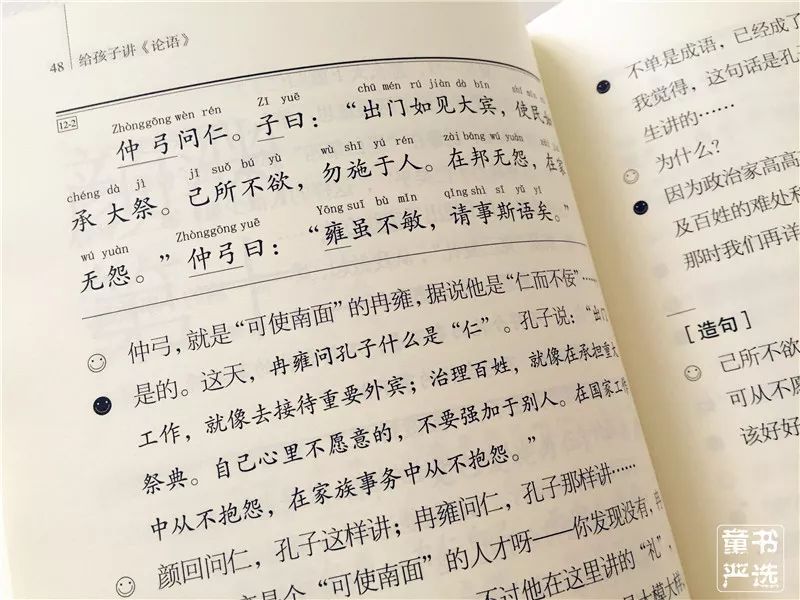 48 给孩子讲《论语》
12-2
Zhònggōng wèn rén Zǐ yuē chū mén rú jiàn dà bīn shǐ mín
仲弓问仁。子曰：“出门如见大宾，使民
chéng dà jì jǐ suǒ bú yù wù shī yú rén zài bāng wú yuàn zài
承大祭。己所不欲，勿施于人。在邦无怨，在
wú yuàn Zhònggōng yuē Yōng suī bù mǐn qǐng shì sī yǔ yǐ
无怨。”仲弓曰：“雍虽不敏，请事斯语矣。”
仲弓，就是“可使南面”的冉雍，据说他是“仁而不佞”……
是的。这天，冉雍问孔子什么是“仁”。孔子说：“出门
工作，就像去接待重要外宾；治理百姓，就像在承担重大
祭典。自己心里不愿意的，不要强加于别人。在国家工作
中从不抱怨，在家族事务中从不抱怨。”
颜回问仁，孔子这样讲；冉雍问仁，孔子那样讲……
是个“可使南面”的人才呀——你发现没有，冉
不过他在这里讲的“礼”，
不单是成语，已经成了
我觉得，这句话是孔
生讲的……
为什么？
因为政治家高高
及百姓的难处和
那时我们再详
［造句］
己所不欲
可从不愿
该好好
童书
严选